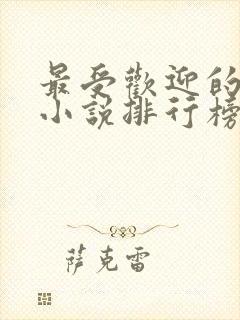 最受歡迎的
小說排行榜
萨克雷